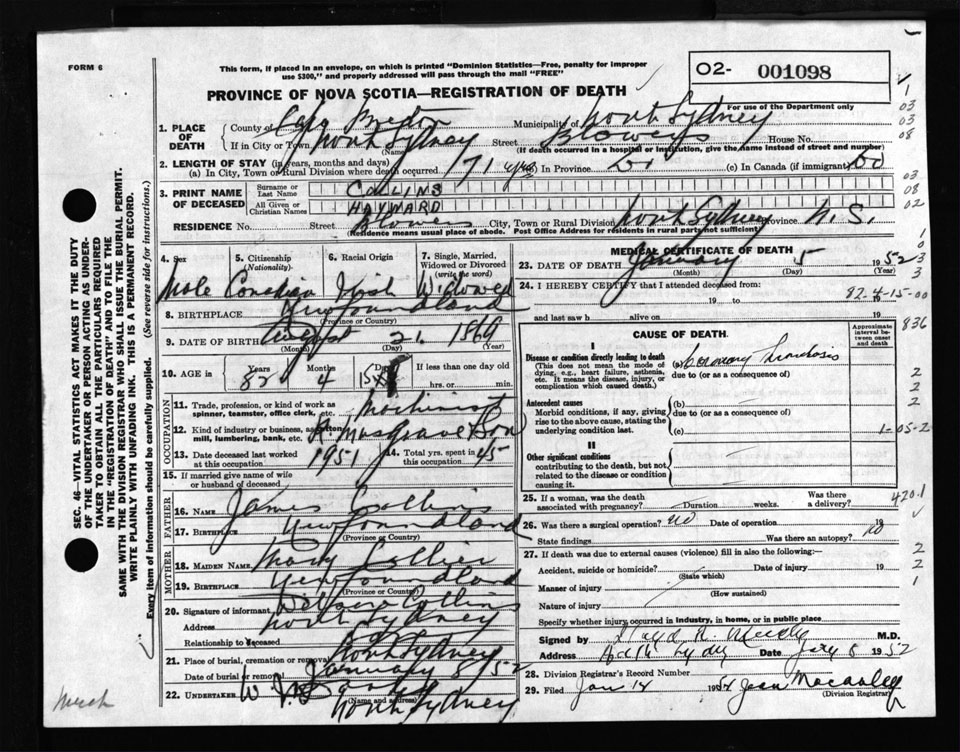 FORM 6
This form, if placed in an envelope, on which is printed "Dominion Statistics—Free, penalty for improper
use $300," and properly addressed will pass through the mail "FREE"
O2- 001098
For use of the Department only
PROVINCE OF NOVA SCOTIA—REGISTRATION OF DEATH
1. PLACE OF DEATH
County of Cape Breton Municipality of North Sydney
If in City or Town North Sydney Street Blowers House No.
(Name) (If death occurred in a hospital or institution, give the name instead of street and number)
2. LENGTH OF STAY (in years, months and days)
(a) In City, Town or Rural Division where death occurred 71 yrs (b) In Province do (c) In Canada (if immigrant) do
3. PRINT NAME OF DECEASED
Surname or Last Name COLLINS
All Given or Christian Names HAYWARD
RESIDENCE No. Street Blowers City, Town or Rural Division North Sydney Province N.S.
(Residence means usual place of abode. Post Office Address for residents in rural parts not sufficient)
4. Sex Male
5. Citizenship (Nationality) Canadian
6. Racial Origin Irish
7. Single, Married, Widowed or Divorced (write the word) Widowed
8. BIRTHPLACE Newfoundland
(Province or Country)
9. DATE OF BIRTH August 21 1869
(Month) (Day) (Year)
10. AGE in Years 82 Months 4 15 If less than one day
hrs. or min.
OCCUPATION
11. Trade, profession, or kind of work as spinner, teamster, office clerk, etc. Machinist
12. Kind of industry or business, as cotton mill, lumbering, bank, etc. Musgrave & Son
13. Date deceased last worked at this occupation 1951
14. Total yrs. spent in this occupation 45
15. If married give name of wife or husband of deceased
FATHER
16. NAME James Collins
17. BIRTHPLACE Newfoundland
(Province or Country)
MOTHER
18. MAIDEN NAME Mary
19. BIRTHPLACE Newfoundland
(Province or Country)
20. Signature of informant Collins
Address North Sydney
Relationship to deceased Son
21. Place of burial, cremation or removal North Sydney
Date of burial or removal January 8/52
22. UNDERTAKER W.
(Name and address)
North Sydney
MEDICAL CERTIFICATE OF DEATH
23. DATE OF DEATH January 5 1952
(Month) (Day) (Year)
24. I HEREBY CERTIFY that I attended deceased from:
19 to 82-4-15-00
and last saw h alive on 19
CAUSE OF DEATH
Approximate interval between onset and death
I
Disease or condition directly leading to death
(This does not mean the mode of dying, e.g., heart failure, asthenia, etc. It means the disease, injury, or complication which caused death.)
(a) Coronary Thrombosis
due to (or as a consequence of)
Antecedent causes
Morbid conditions, if any, giving rise to the above cause, stating the underlying condition last.
(b)
due to (or as a consequence of)
(c)
II
Other significant conditions
contributing to the death, but not related to the disease or condition causing it.
25. If a woman, was the death associated with pregnancy? Duration weeks. Was there a delivery?
26. Was there a surgical operation? no Date of operation 19
State findings Was there an autopsy? no
27. If death was due to external causes (violence) fill in also the following:—
Accident, suicide or homicide? Date of injury 19
(State which)
Manner of injury
(How sustained)
Nature of injury
Specify whether injury occurred in industry, in home, or in public place
Signed by M.D.
Address North Sydney Date Jany 8 1952
28. Division Registrar's Record Number
29. Filed Jan 14 195 Jean Macaulay
(Division Registrar)
SEC. 46—VITAL STATISTICS ACT MAKES IT THE DUTY
OF THE UNDERTAKER OR PERSON ACTING AS UNDER-
TAKER TO OBTAIN ALL THE PARTICULARS REQUIRED
IN THE "REGISTRATION OF DEATH" AND TO FILE THE
SAME WITH THE DIVISION REGISTRAR WHO SHALL ISSUE THE BURIAL PERMIT.
WRITE PLAINLY WITH UNFADING INK. THIS IS A PERMANENT RECORD.
Every item of information should be carefully supplied. (See reverse side for instructions.)
1
03
03
08
03
08
02
1
0
3
3
836
2
2
2
1-05-2
420.1
2
2
1